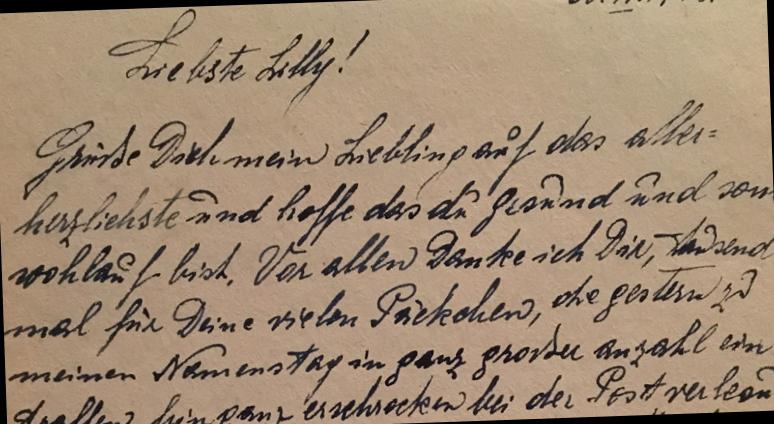 Liebste Lilly!
Grüße Dich mein Liebling auf das aller=
herzlichste und hoffe das du gesund und son
wohlauf bist. Vor allen Danke ich Dir, tausend
mal für Deine vielen Päckchen, die gestern zu
meinen Namenstag in ganz großer anzahl ein
trafen, bin ganz erschrocken bei der Post